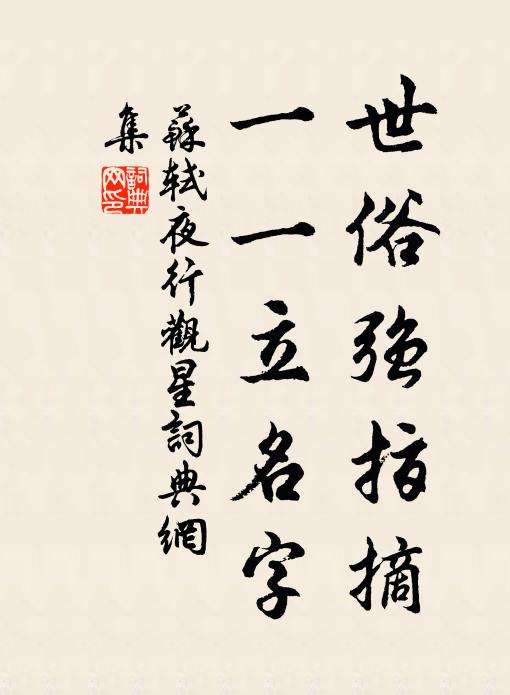 世俗強指摘
一一立名字
蘇軾夜行觀星詞典網
集
詞典
网印